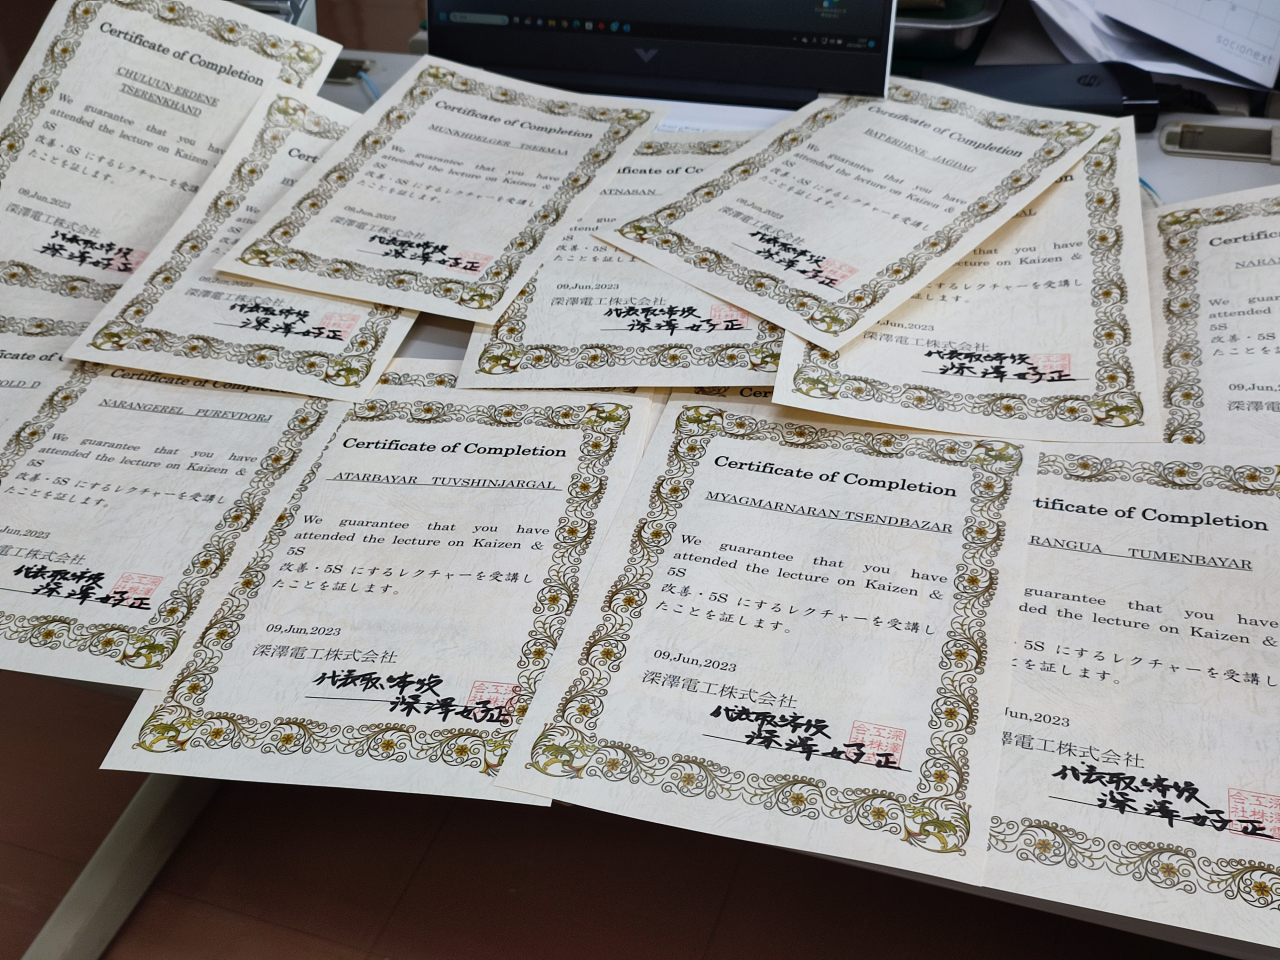 Certificate of Completion
CHULUUN-ERDENE
TSERENKHAND
We guarantee that you hav
attended the lecture on Kaizen
5S
改善・5S にするレクチャーを受講
たことを証します。
09,Jun,2023
深澤電工株式会社
代表取締役
深澤 好正
Certificate of Completion
MUNKHDELGER TSERMAA
We guarantee that you have
attended the lecture on Kaizen &
5S
改善・5S にするレクチャーを受講し
たことを証します。
09,Jun,2023
深澤電工株式会社
代表取締役
深澤 好正
Certificate of Completion
BAT-ERDENE JAGDAG
We guarantee that you have
attended the lecture on Kaizen &
5S
改善・5S にするレクチャーを受講し
たことを証します。
09,Jun,2023
深澤電工株式会社
代表取締役
深澤 好正
socionext
Cer
深澤電工株式会社
代表取締役
深澤 好正
ificate of Co
ATNASAN
attend
5S
改善・5S
たことを証しま
09,Jun,2023
深澤電工株式会社
代表取締役
深澤 好正
on
GAL
that you have
cture on Kaizen &
にするレクチャーを受講し
証します。
,Jun,2023
深澤電工株式会社
代表取締役
深澤 好正
Certific
NARAN
We guara
attended the
5S
改善・5S に
たことを証
09,Jun,2023
深澤電
cate of Co
OLD D
Certificate of Comple
NARANGEREL PUREVDORJ
We guarantee that you have
attended the lecture on Kaizen &
5S
改善・5S にするレクチャーを受講し
たことを証します。
Jun,2023
電工株式会社
代表取締役
深澤 好正
Certificate of Completion
ATARBAYAR TUVSHINJARGAL
We guarantee that you have
attended the lecture on Kaizen &
5S
改善・5S にするレクチャーを受講し
たことを証します。
09,Jun,2023
深澤電工株式会社
代表取締役
深澤 好正
Cer
Certificate of Completion
MYAGMARNARAN TSENDBAZAR
We guarantee that you have
attended the lecture on Kaizen &
5S
改善・5S にするレクチャーを受講し
たことを証します。
09,Jun,2023
深澤電工株式会社
代表取締役
深澤 好正
tificate of Completion
RANGUA TUMENBAYAR
guarantee that you have
ded the lecture on Kaizen &
・5S にするレクチャーを受講し
とを証します。
Jun,2023
澤電工株式会社
代表取締役
深澤 好正